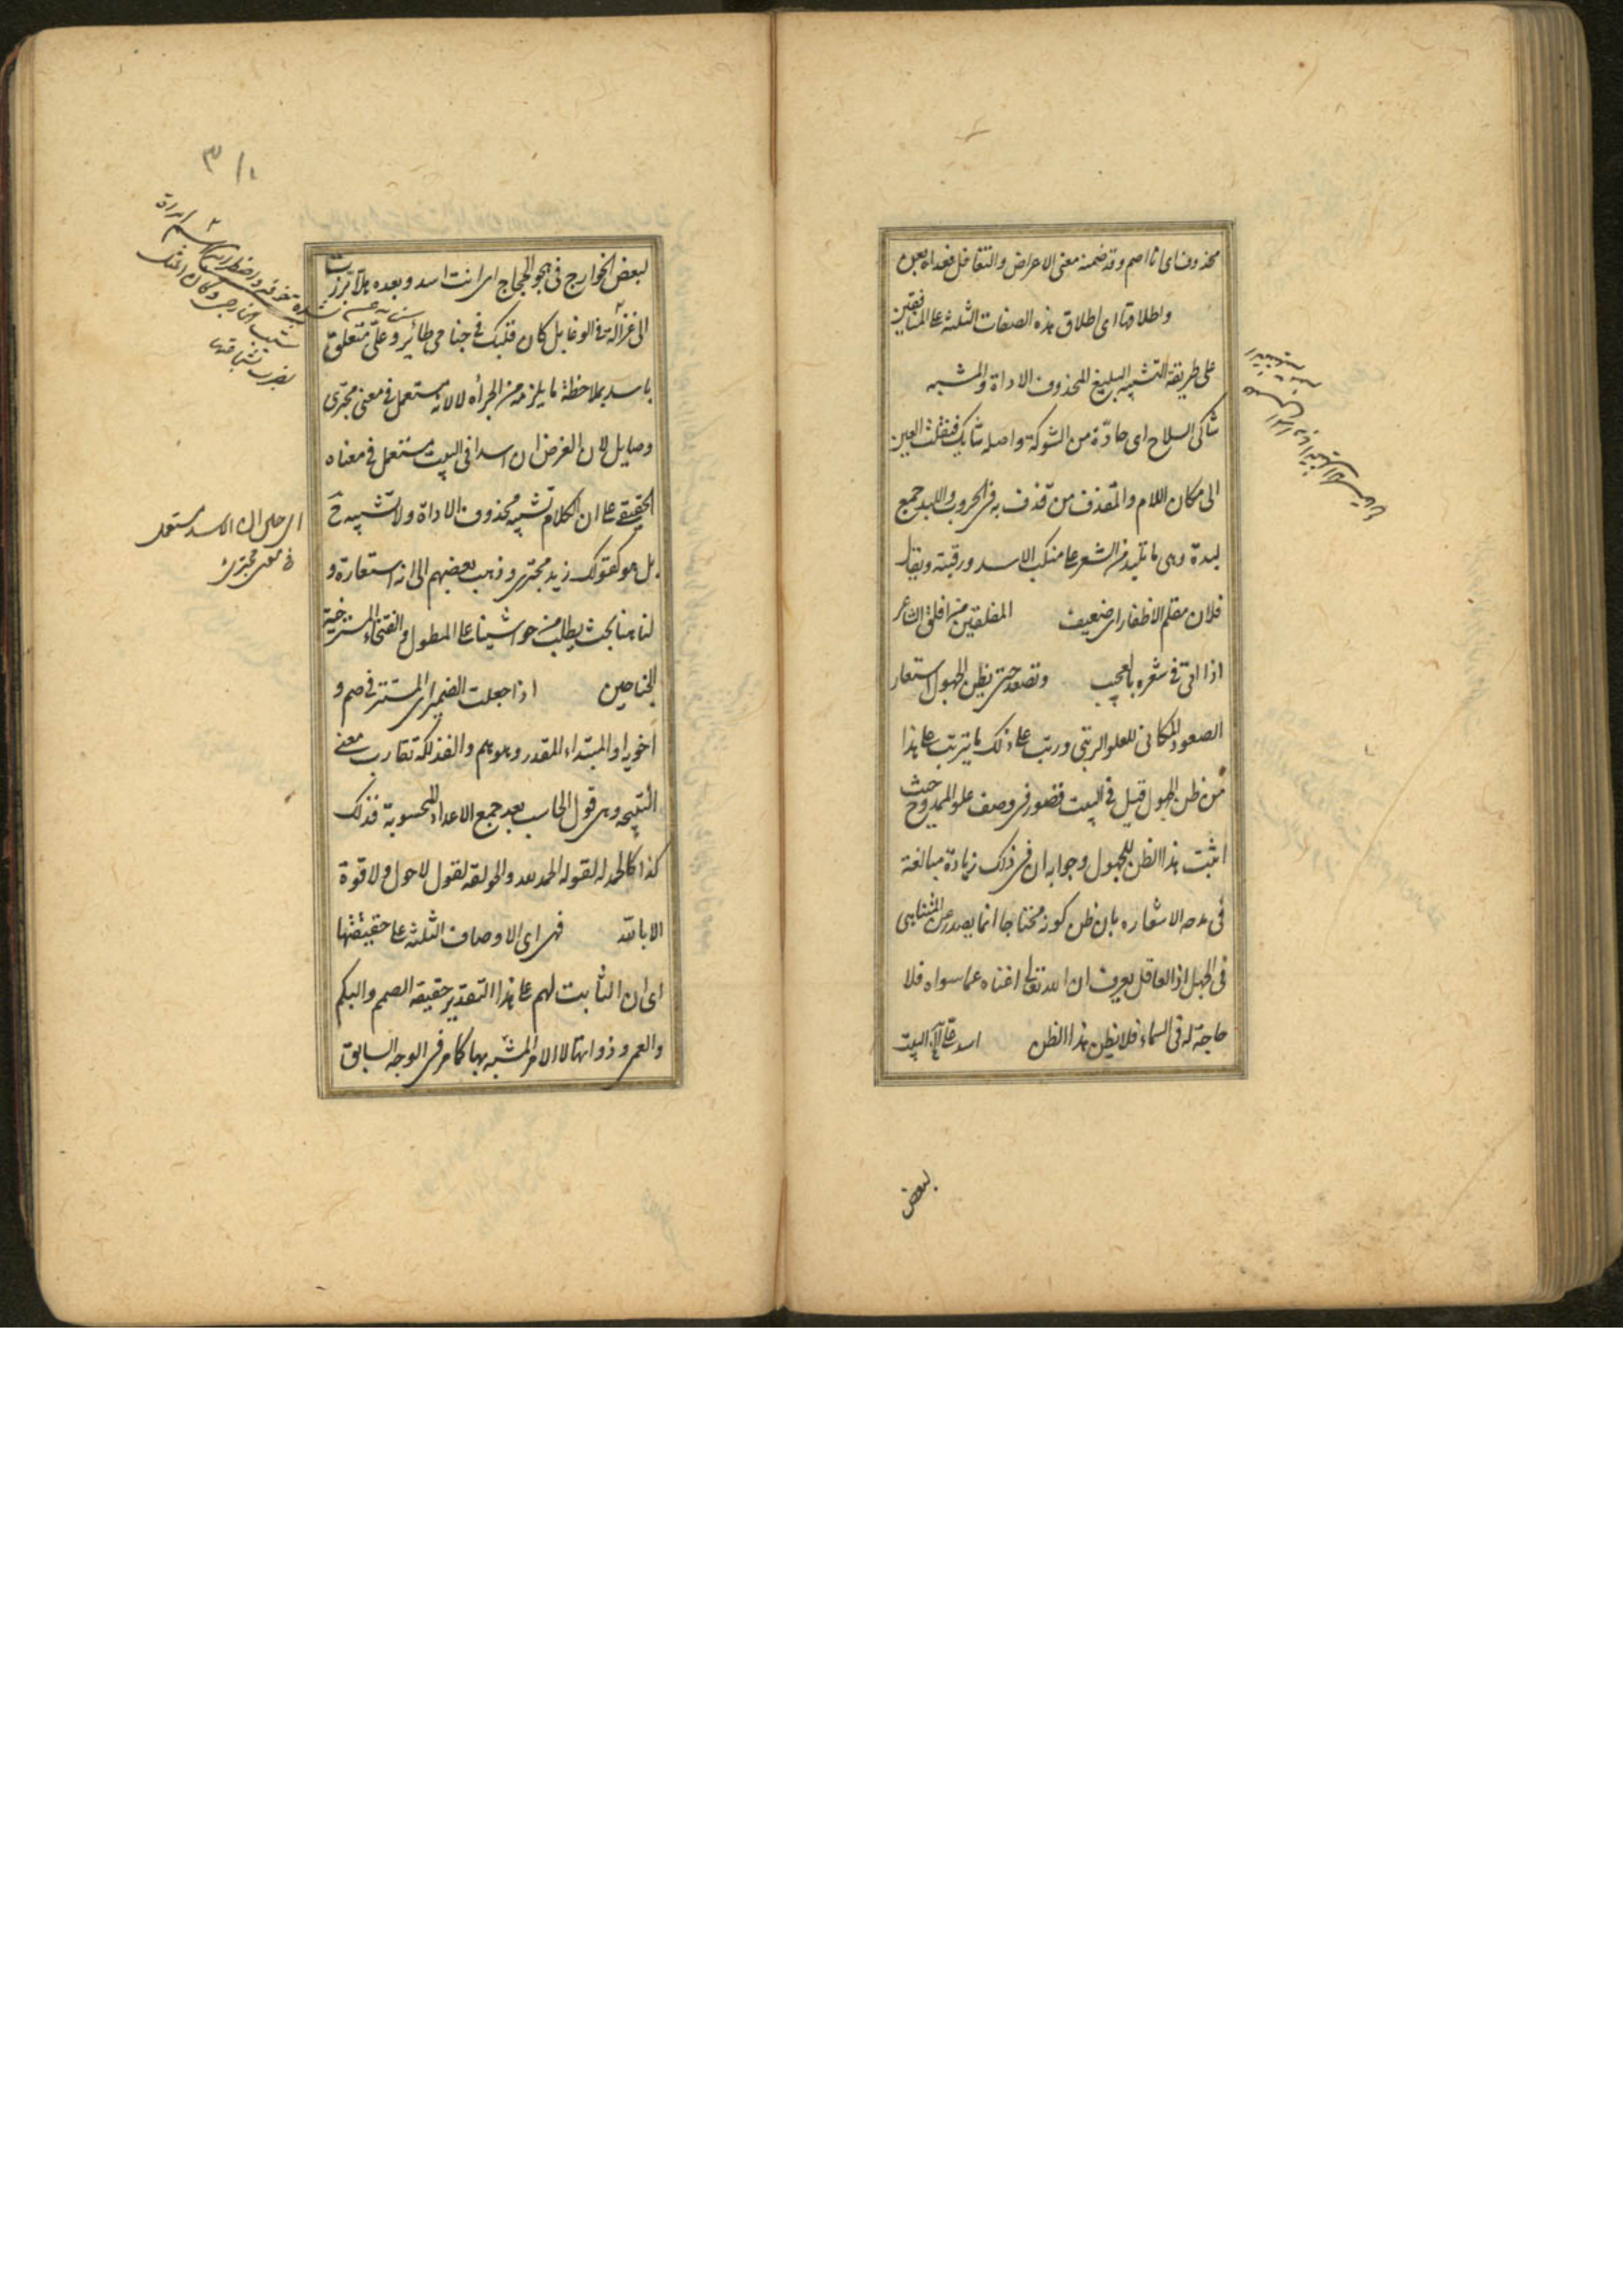 محذوف اى انا اصم وقد ضمنه معنى الاعراض والتغافل فعداه بعن
واطلاقها اى اطلاق هذه الصفات الثلثة على المنافقين
على طريقة التشبيه البليغ المحذوف الاداة والمشبه
شاكى السلاح اى حادّة من الشوكة واصله شايك فنقلت العين
الى مكان اللام والمقذف من قذف به فى الحروب واللبد جمع
لبدة وهى ما تلبد من الشعر على منكب الاسد ورقبته ويقال
فلان مقلم الاظفار اى ضعيف المفلقين من افلق الشاعر
اذا اتى فى شعره بالعجيب وتصعد حتى يظن الجهول استعار
الصعود المكانى للعلو الرتبى ورتب على ذلك ما يترتب على هذا
من ظن الجهول قيل فى البيت قصور فى وصف علو الممدوح حيث
اثبت هذا الظن للجهول وجوابه ان فى ذلك زيادة مبالغة
فى مدحه لاشعاره بان ظن كونه محتاجا انما يصدر عن المتناهى
فى الجهل اذ العاقل يعرف ان الله تعالى اغناه عما سواه فلا
حاجة له فى السماء فلا يظن هذا الظن اسد علىّ البيت
لبعض
لبعض الخوارج فى هجو الحجاج اى انت اسد وبعده هلا برزت
الى غزالة فى الوغا بل كان قلبك فى جناحى طائر وعلىّ متعلق
باسد بملاحظة ما يلزمه من الجرأة لا لانه مستعمل فى معنى مجترئ
وصايل لان الغرض ان اسدا فى البيت مستعمل فى معناه
الحقيقى على ان الكلام تشبيه محذوف الاداة ولا تشبيه ح
بل هو كقولك زيد مجترئ وذهب بعضهم الى انه استعارة و
لنا هنا بحث يطلب من حواشينا على المطول والفتخاء المسترخية
الجناحين اذا جعلت الضمير اى المستتر فى صم و
اخويه او المبتداء المقدر وهو هم والفذلكة تقارب معنى
النتيجة وهى قول الحاسب بعد جمع الاعداد المحسوبة فذلك
كذا كالحمدلة لقوله الحمد لله والحولقة لقول لاحول ولا قوة
الا بالله فهى اى الاوصاف الثلثة على حقيقتها
اى ان الثابت لهم على هذا التقدير حقيقة الصمم والبكم
والعمى وذواتها لا الامر المشبه بها كما مر فى الوجه السابق
اى حال ان الاسد مستعمل
فى معنى مجترئ